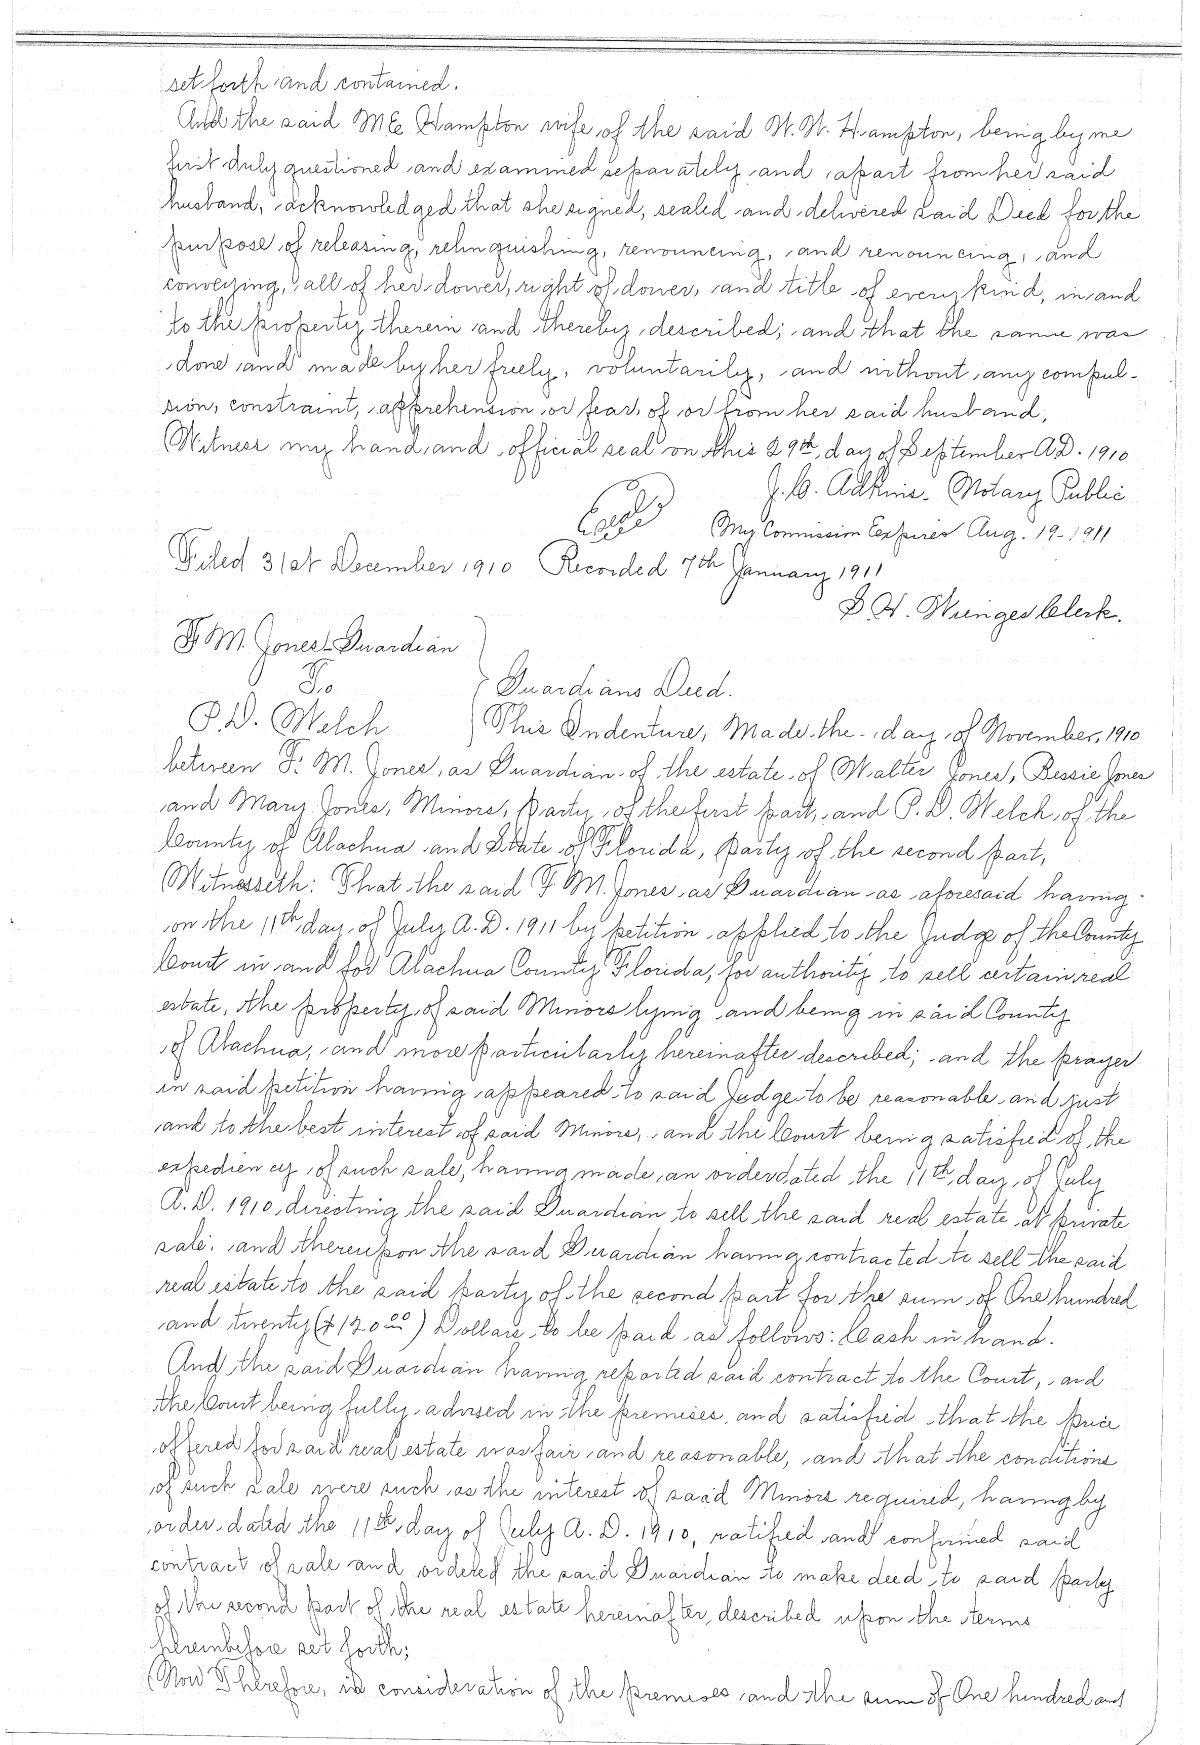 set forth and contained.
And the said M E Hampton wife of the said W. W. Hampton, being by me
first duly questioned and examined separately and apart from her said
husband, acknowledged that she signed, sealed and delivered said Deed for the
purpose of releasing, relinquishing, renouncing, and renouncing, and
conveying, all of her dower, right of dower, and title of every kind, in and
to the property therein and thereby described; and that the same was
done and made by her freely, voluntarily, and without any compul-
sion, constraint, apprehension or fear, of or from her said husband,
Witness my hand and official seal on this 29th day of September A.D. 1910
J. C. Adkins. Notary Public
Seal
My Commission Expires Aug. 19-1911
Filed 31st December 1910 Recorded 7th January 1911
S. H. Wienges Clerk.
F. M. Jones Guardian
To
Guardians Deed.
P. D. Welch
This Indenture, Made the - day of November, 1910
between F. M. Jones, as Guardian of the estate of Walter Jones, Bessie Jones
and Mary Jones, Minors, Party of the first part, and P. D. Welch of the
County of Alachua and State of Florida, party of the second part,
Witnesseth: That the said F M. Jones as Guardian as aforesaid having
on the 11th day of July A. D. 1911 by petition applied to the Judge of the County
Court in and for Alachua County Florida, for authority to sell certain real
estate, the property of said Minors lying and being in said County
of Alachua, and more particularly hereinafter described; and the prayer
in said petition having appeared to said Judge to be reasonable and just
and to the best interest of said Minors, and the Court being satisfied of the
expediency of such sale, having made an order dated the 11th day of July
A. D. 1910, directing the said Guardian to sell the said real estate at private
sale: and thereupon the said Guardian having contracted to sell the said
real estate to the said party of the second part for the sum of One hundred
and twenty ($120 00) Dollars to be paid as follows: Cash in hand.
And the said Guardian having reported said contract to the Court, and
the Court being fully advised in the premises and satisfied that the price
offered for said real estate was fair and reasonable, and that the conditions
of such sale were such as the interest of said Minors required, having by
order dated the 11th day of July A. D. 1910, ratified and confirmed said
contract of sale and ordered the said Guardian to make deed to said party
of the second part of the real estate hereinafter described upon the terms
hereinbefore set forth;
Now Therefore, in consideration of the premises and the sum of One hundred and